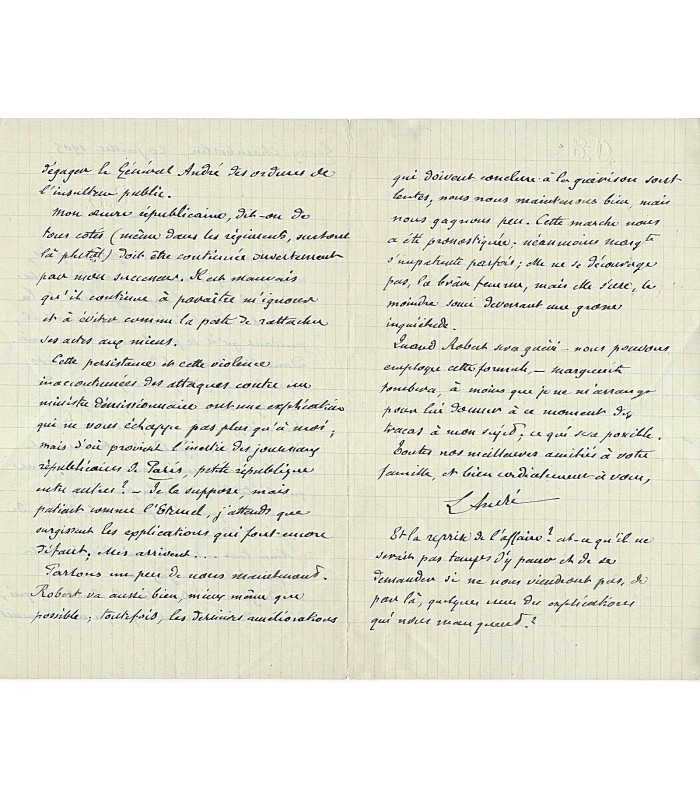 dégager le Général André des ordures de
l'insulteur public.
Mon œuvre républicaine, dit-on de
tous côtés (même dans les régiments, surtout
là plutôt) doit être continuée ouvertement
par mon successeur. Il est mauvais
qu'il continue à paraître m'ignorer
et à éviter comme la peste de rattacher
ses actes aux miens.
Cette persistance et cette violence
inaccoutumées des attaques contre un
ministre démissionnaire ont une explication
qui ne vous échappe pas plus qu'à moi;
mais d'où provient l'inertie des journaux
républicains de Paris, petite république
entre autres? - Je la suppose, mais
patient comme l'Eternel, j'attends que
surgissent les explications qui font encore
défaut; elles arrivent...
Parlons un peu de nous maintenant.
Robert va aussi bien, mieux même que
possible; toutefois, les dernières améliorations
qui doivent conclure à la guérison sont
lentes; nous nous maintenons bien, mais
nous gagnons peu. Cette marche nous
a été pronostiquée; néanmoins Margte
s'impatiente parfois; elle ne se décourage
pas, la brave femme, mais elle s'use, le
moindre souci devenant une grosse
inquiétude.
Quand Robert sera guéri - nous pouvons
employer cette formule, - Marguerite
tombera, à moins que je ne m'arrange
pour lui donner à ce moment des
tracas à mon sujet; ce qui sera possible.
Toutes nos meilleures amitiés à votre
famille, et bien cordialement à vous,
L André
Et la reprise de l'affaire? est-ce qu'il ne
serait pas temps d'y penser et de se
demander si ne nous viendront pas, de
par là, quelques unes des explications
qui nous manquent?